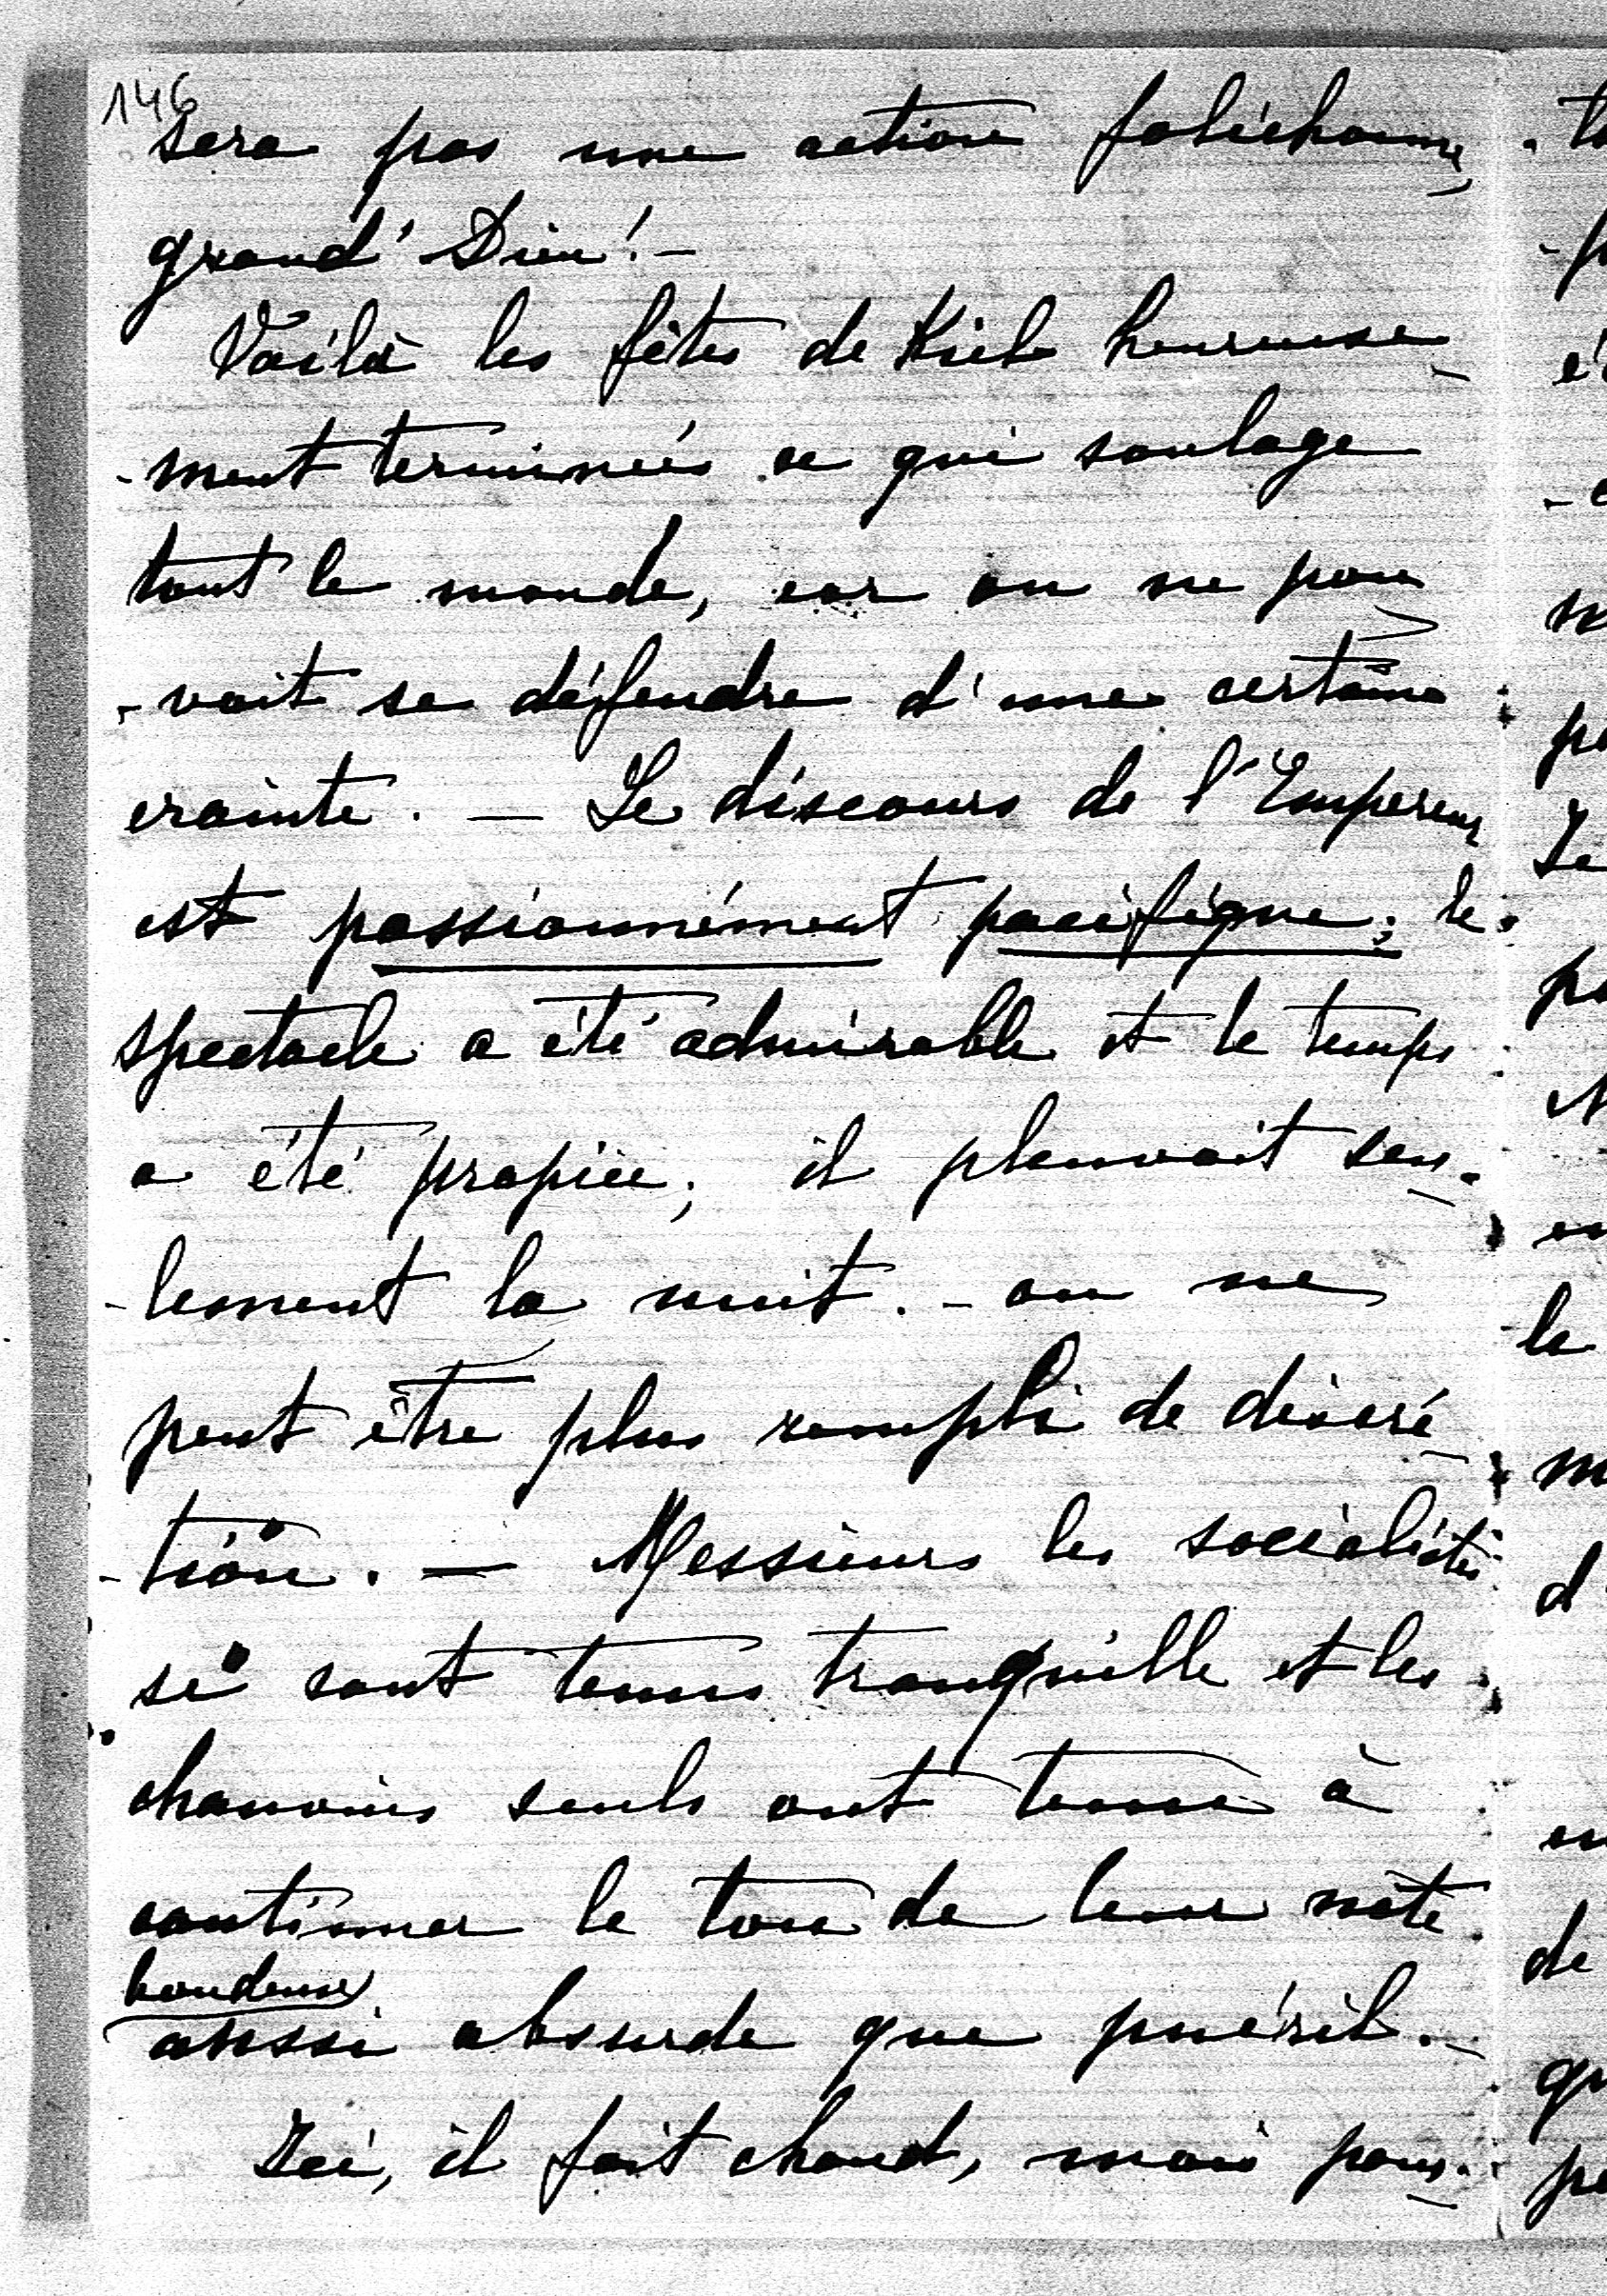 146
sera pas une action folichonne,
grand' Dieu! -
Voilà les fêtes de Kiel heureuse-
-ment terminées ce qui soulage
tout le monde, car on ne pou-
-vait se défendre d'une certaine
crainte. - Le discours de l'Empereur
est passionnément pacifique; le
spectacle a été admirable et le temps
a été propice; il pleuvait seu-
-lement la nuit. - on ne
peut être plus rempli de discré-
-tion. - Messieurs les socialistes
se sont tenus tranquille et les
chauvins seuls ont tenu à
continuer le ton de leur note
boudeuse
aussi absurde que puéril. -
Ici, il fait chaud, mais pour-